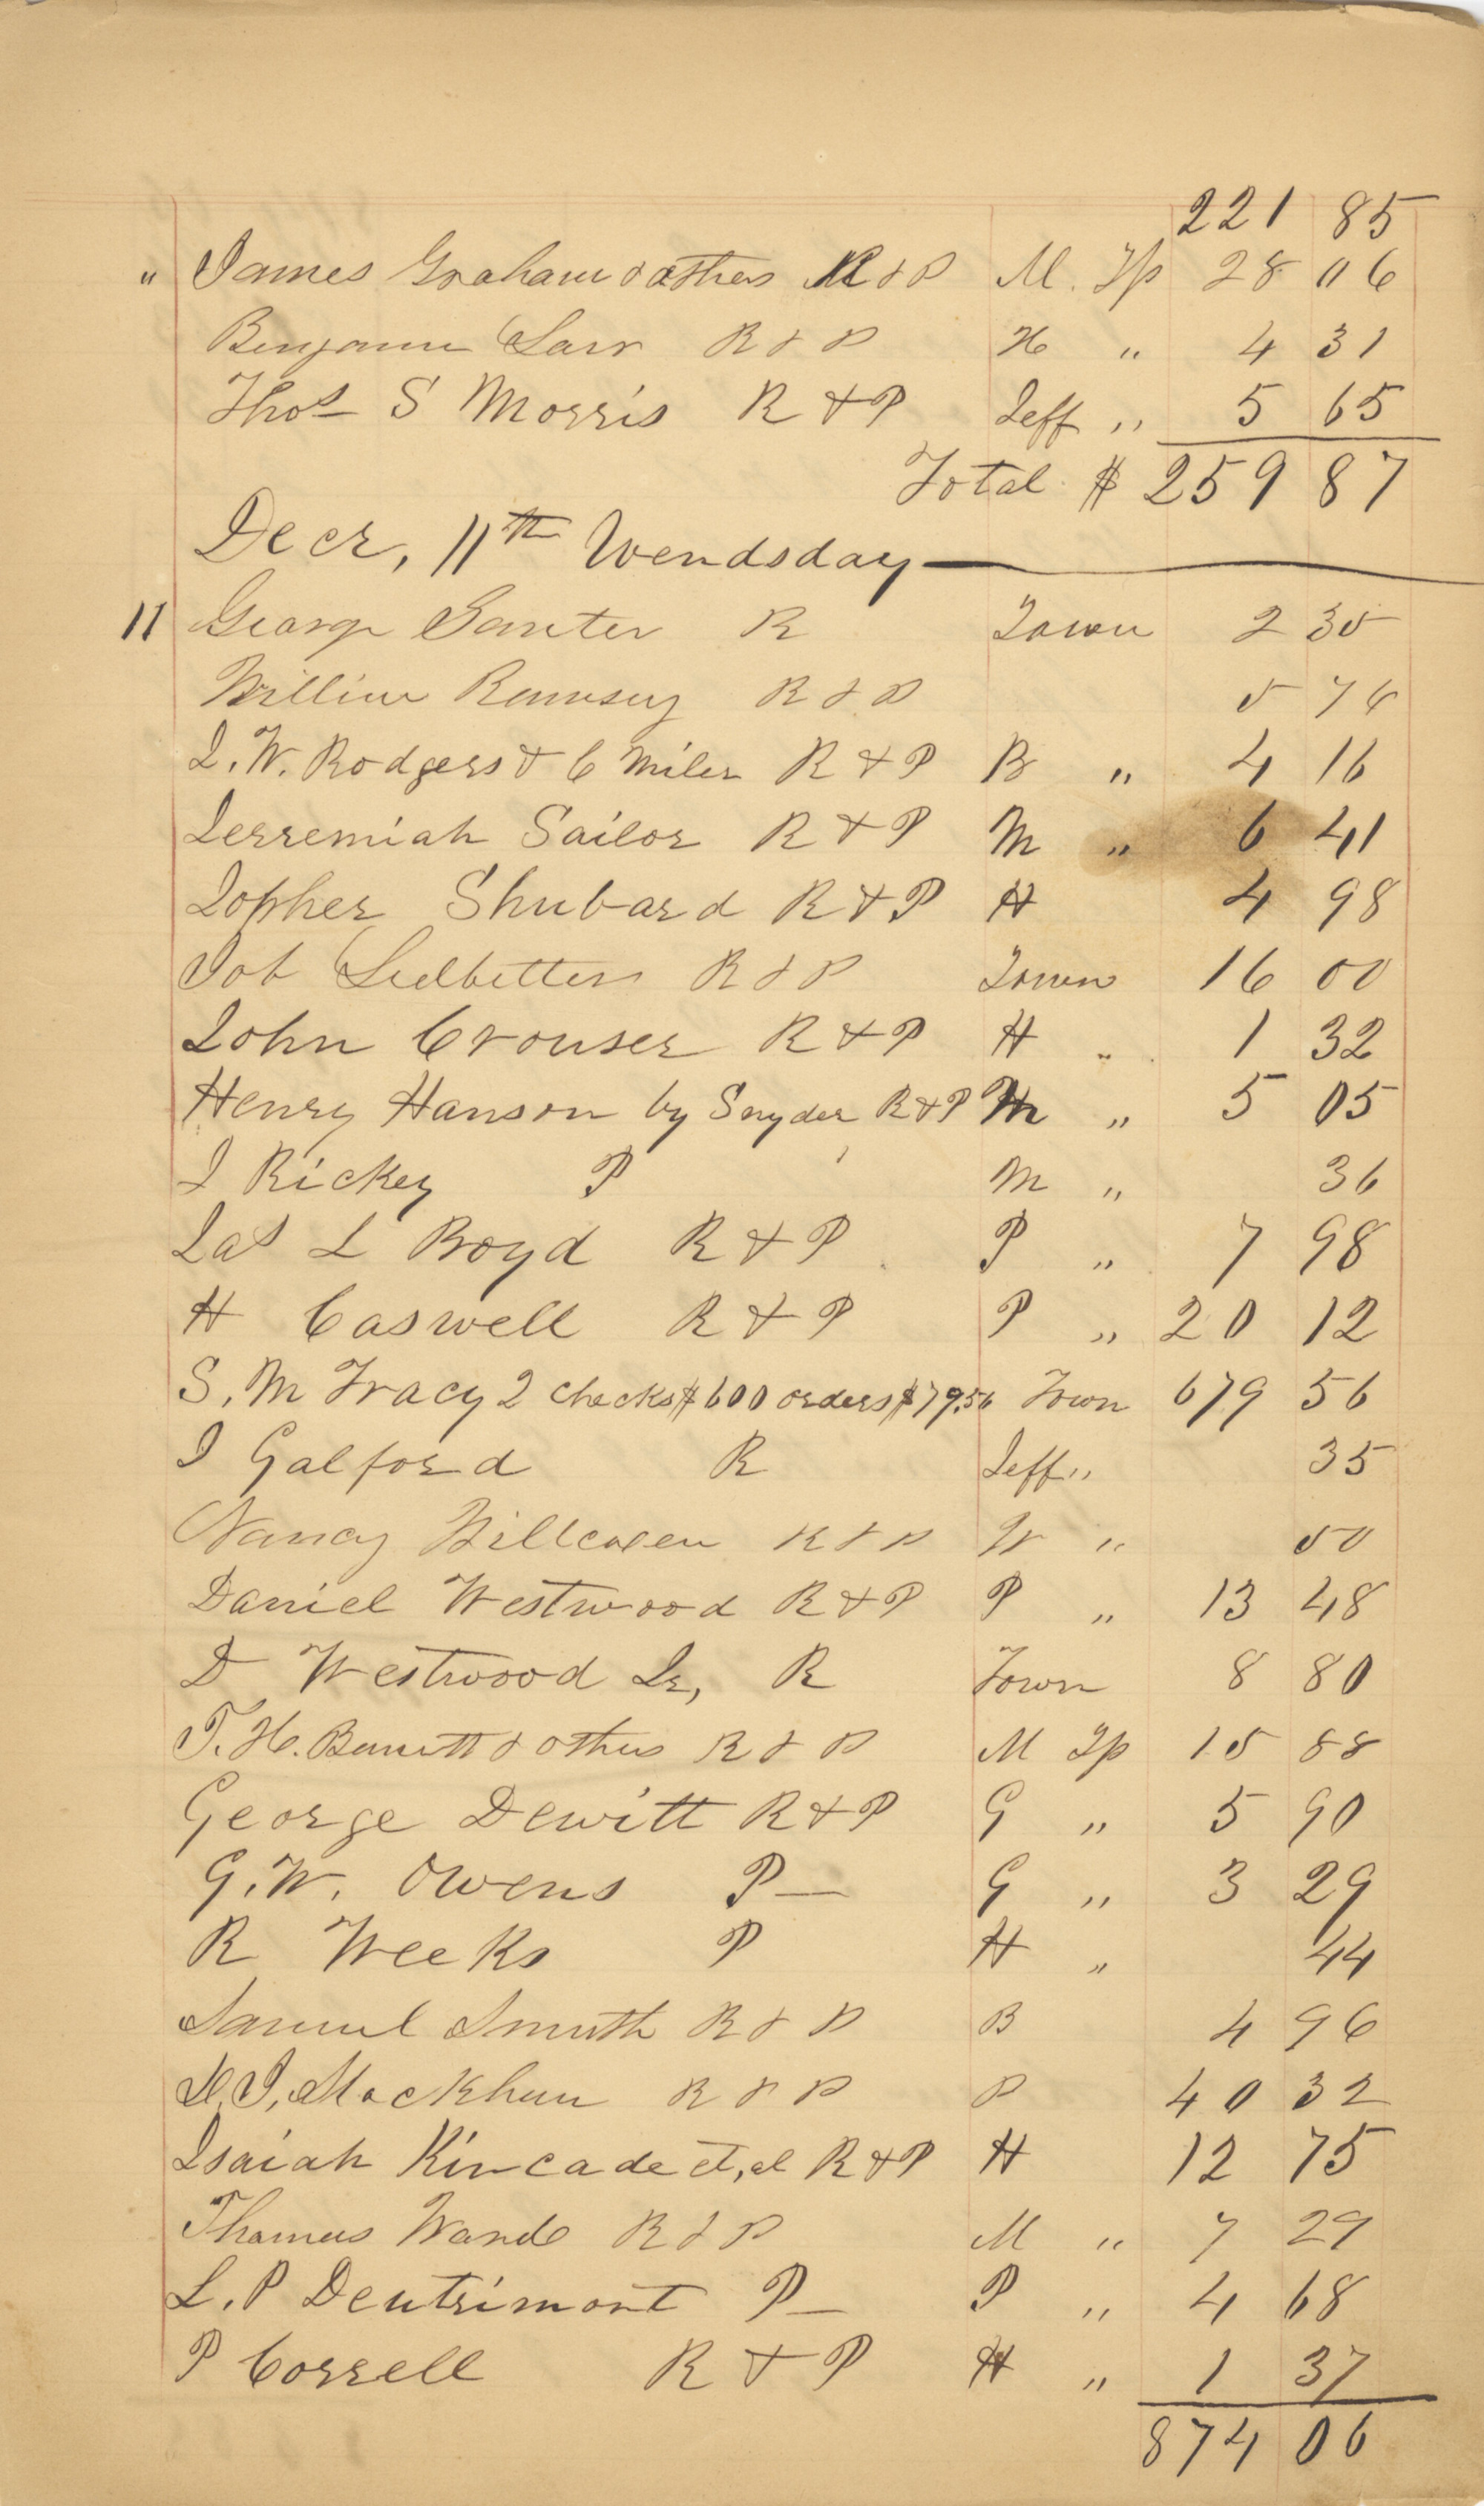 221 85
" James Graham & others R & P M. Tp 28 06
Benjamin Larr R & P H " 4 31
Thos S Morris R & P Jeff " 5 65
Total $ 259 87
Decr, 11th Wendsday
11 George Santer R Town 2 35
William Ramsey R & P 5 76
J. W. Rodgers & C Miler R & P B " 4 16
Jerremiah Sailor R & P M " 6 41
Topher Shubard R & P H 4 98
Job Ledbetter R & P Town 16 00
John Crouser R & P H " 1 32
Henry Hanson by Snyder R & P M " 5 05
J Rickey P M " 36
Jas L Boyd R & P P " 7 98
H Caswell R & P P " 20 12
S. M Tracy 2 checks $600 orders $79.56 Town 679 56
I Galford R Jeff " 35
Nancy Willcoxen R & P W " 50
Daniel Westwood R & P P " 13 48
D Westwood Jr, R Town 8 80
T. H. Barrett & others R & P M Tp 15 88
George Dewitt R & P G " 5 90
G. W. Owens P — G " 3 29
R Weeks P H " 44
Samuel Smith R & P B 4 96
R & P P 40 32
Isaiah Kincade et, al R & P H 12 75
Thomas Wande R & P M " 7 29
L. P Deutrimont P — P " 4 68
P Correll R & P H " 1 37
874 06